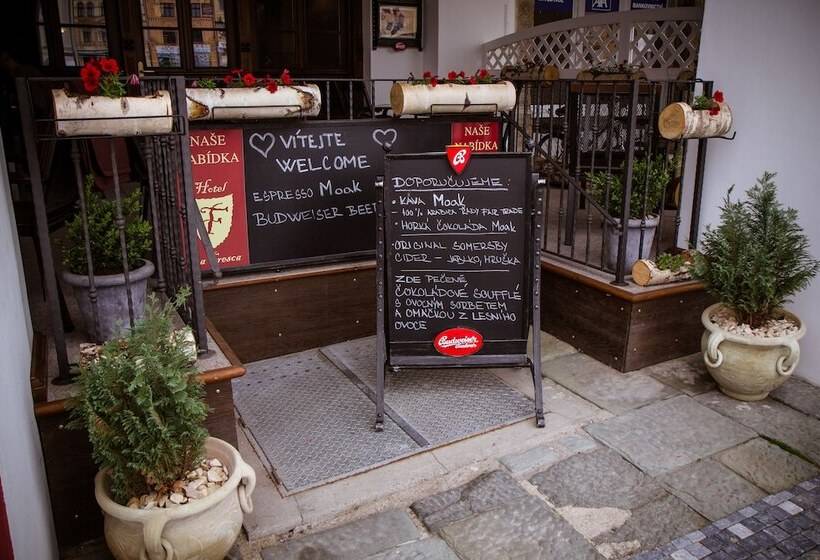 AXA
BANKOVNICTVÍ
NAŠE
NABÍDKA
Hotel
VÍTEJTE
WELCOME
ESPRESSO Moak
BUDWEISER BEER
NAŠE
DOPORUČUJEME:
• KÁVA Moak
• HORKÁ ČOKOLÁDA Moak
• ORIGINAL SOMERSBY
CIDER - JABLKO, HRUŠKA
ZDE PEČENÉ
ČOKOLÁDOVÉ SOUFFLÉ
S OVOCNÝM SORBETEM
A OMÁČKOU Z LESNÍHO
OVOCE
Budweiser
Budvar
- 100% ARABICA FAIR TRADE